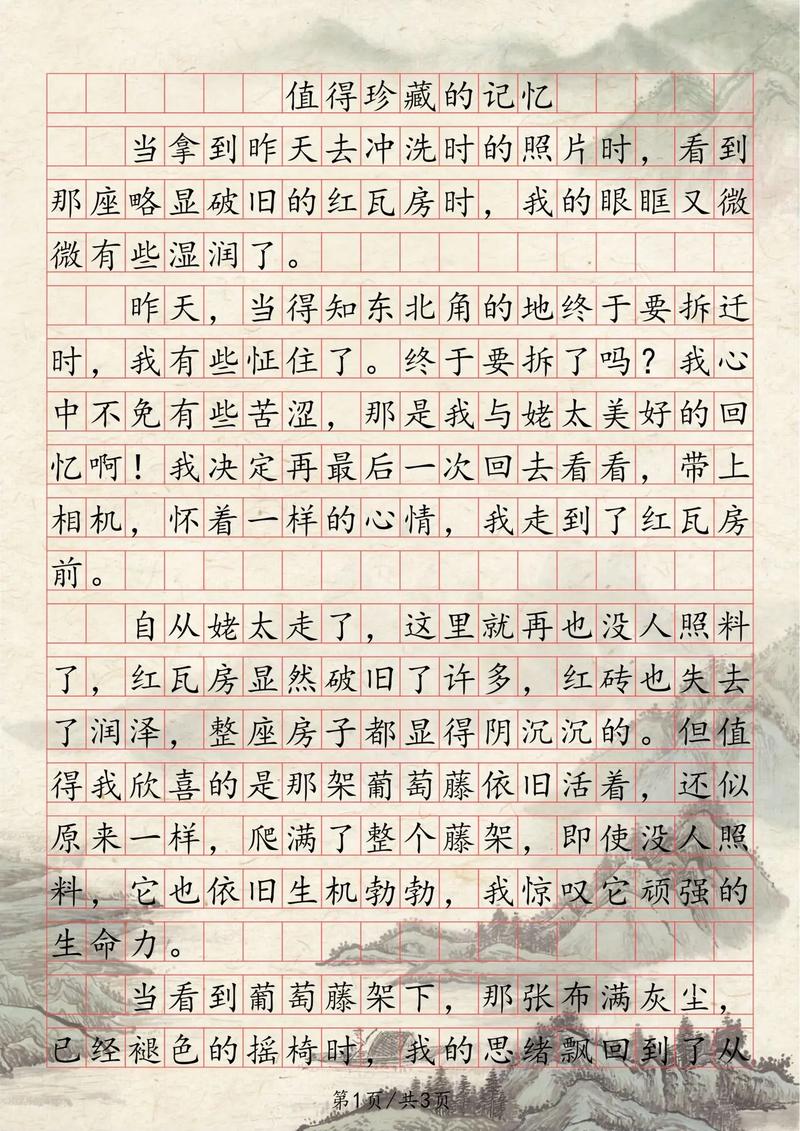 值得珍藏的记忆
当拿到昨天去冲洗时的照片时，看到
那座略显破旧的红瓦房时，我的眼眶又微
微有些湿润了。
昨天，当得知东北角的地终于要拆迁
时，我有些怔住了。终于要拆了吗？我心
中不免有些苦涩，那是我与姥太美好的回
忆啊！我决定再最后一次回去看看，带上
相机，怀着一样的心情，我走到了红瓦房
前。
自从姥太走了，这里就再也没人照料
了，红瓦房显然破旧了许多，红砖也失去
了润泽，整座房子都显得阴沉沉的。但值
得我欣喜的是那架葡萄藤依旧活着，还似
原来一样，爬满了整个藤架，即使没人照
料，它也依旧生机勃勃，我惊叹它顽强的
生命力。
当看到葡萄藤架下，那张布满灰尘，
已经褪色的摇椅时，我的思绪飘回到了从
第1页/共3页